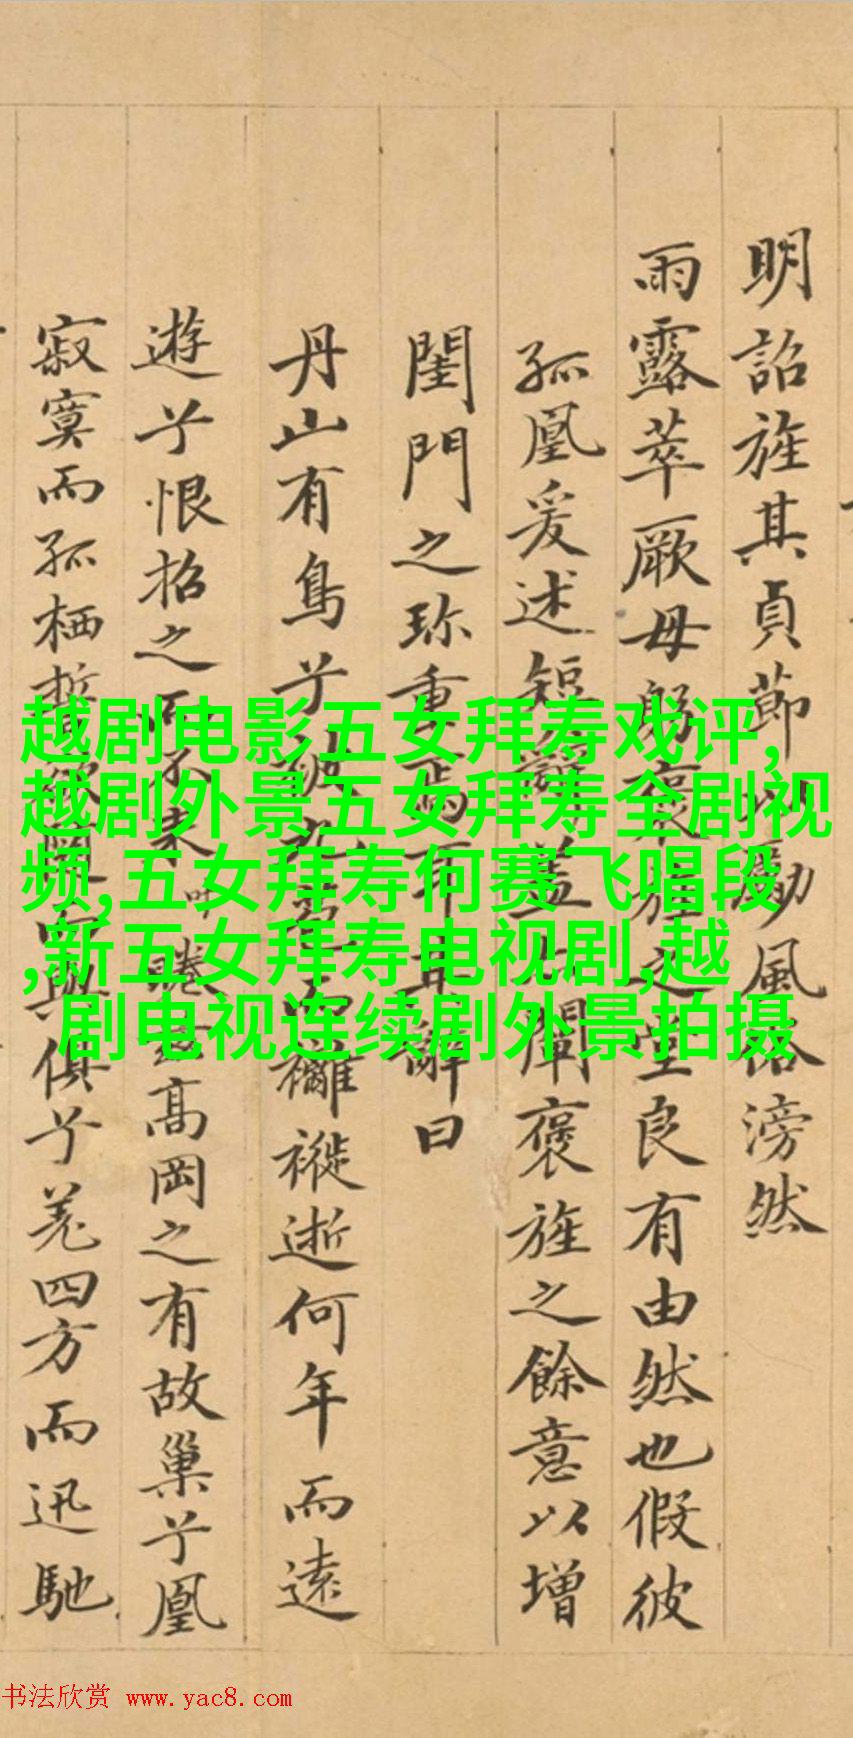 明詔旌其貞節以勵風俗滂然
雨露萃厥母躬褒旌之堂良有由然也假彼
孤凰爰述短辭蓋以闡褒旌之餘意以增
閨門之珎重焉耳其辭曰
丹山有鳥兮而襹褷逝何年而遠
遊兮恨招之而不来叶睠高岡之有故巢兮凰
寂寞而孤栖誓與俱兮羌四方而迅馳
越剧电影五女拜寿戏评,
越剧外景五女拜寿全剧视
频,五女拜寿何赛飞唱段
,新五女拜寿电视剧,越
剧电视连续剧外景拍摄
书法欣赏 www.yac8.com